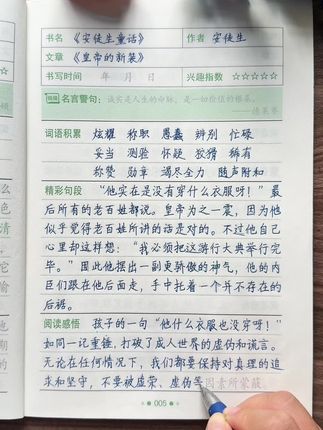 书名 《安徒生童话》 作者 安徒生
文章 《皇帝的新装》
书写时间 年 月 日 兴趣指数 ☆☆☆☆☆
名言警句: 诚实是人生的命脉,是一切价值的根基。
——德莱赛
词语积累 炫耀 称职 愚蠢 辨别 忙碌
妥当 测验 怀疑 狡猾 稀有
称赞 勋章 竭尽全力 随声附和
精彩句段 “他实在是没有穿什么衣服呀!”最
后所有的老百姓都说。皇帝为之一震,因为他
似乎觉得老百姓所讲的话是对的。不过他自己
心里却这样想:“我必须把这游行大典举行完
毕。”因此他摆出一副更骄傲的神气,他的内
臣们跟在他后面走,手中托着一个并不存在的
后裾。
阅读感悟 孩子的一句“他什么衣服也没穿呀!”
如同一记重锤,打破了成人世界的虚伪和谎言。
无论在任何情况下,我们都要保持对真理的追
求和坚守,不要被虚荣、虚伪等因素所蒙蔽
005